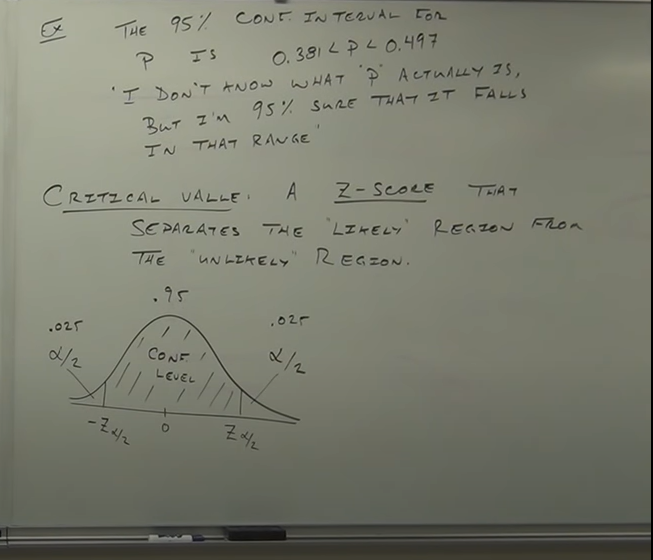 Ex THE 95% CONF. INTERVAL FOR
P IS 0.381 < P < 0.497
"I DON'T KNOW WHAT "P" ACTUALLY IS,
BUT I'M 95% SURE THAT IT FALLS
IN THAT RANGE"
CRITICAL VALUE. A Z-SCORE THAT
SEPARATES THE "LIKELY" REGION FROM
THE "UNLIKELY" REGION.
.95
.025 .025
α/2 CONF. LEVEL α/2
-Z α/2 0 Z α/2